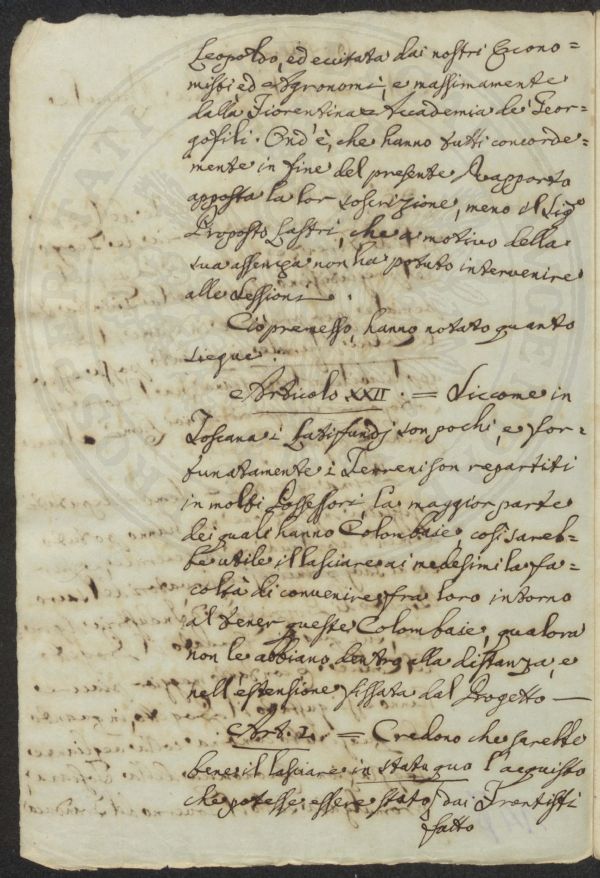 Leopoldo, ed eccitata dai nostri Econo=
misti ed Agronomi, e massimamente
dalla Fiorentina Accademia de' Geor-
gofili. Ond'è, che hanno tutti concorde=
mente in fine del presente Rapporto
apposta la lor soscrizione, meno il Sigᵉ
Proposto Lastri, che a motivo della
sua assenza non ha potuto intervenire
alle Sessioni.
Ciò premesso, hanno notato quanto
siegue:
Articolo XXII. = Siccome in
Toscana i Latifundj son pochi, e for-
tunatamente i Terreni son repartiti
in molti Possessori, la maggior parte
dei quali hanno Colombaie, così sareb=
be utile il lasciare ai medesimi la fa=
coltà di convenire fra loro intorno
al tener queste Colombaie, qualora
non le abbiano dentro alla distanza, e
nell'estensione fissata dal Progetto —
Art. 2. = Credono che sarebbe
bene il lasciare in statu quo l'acquisto
che potesse essere stato dai Frontisti
fatto